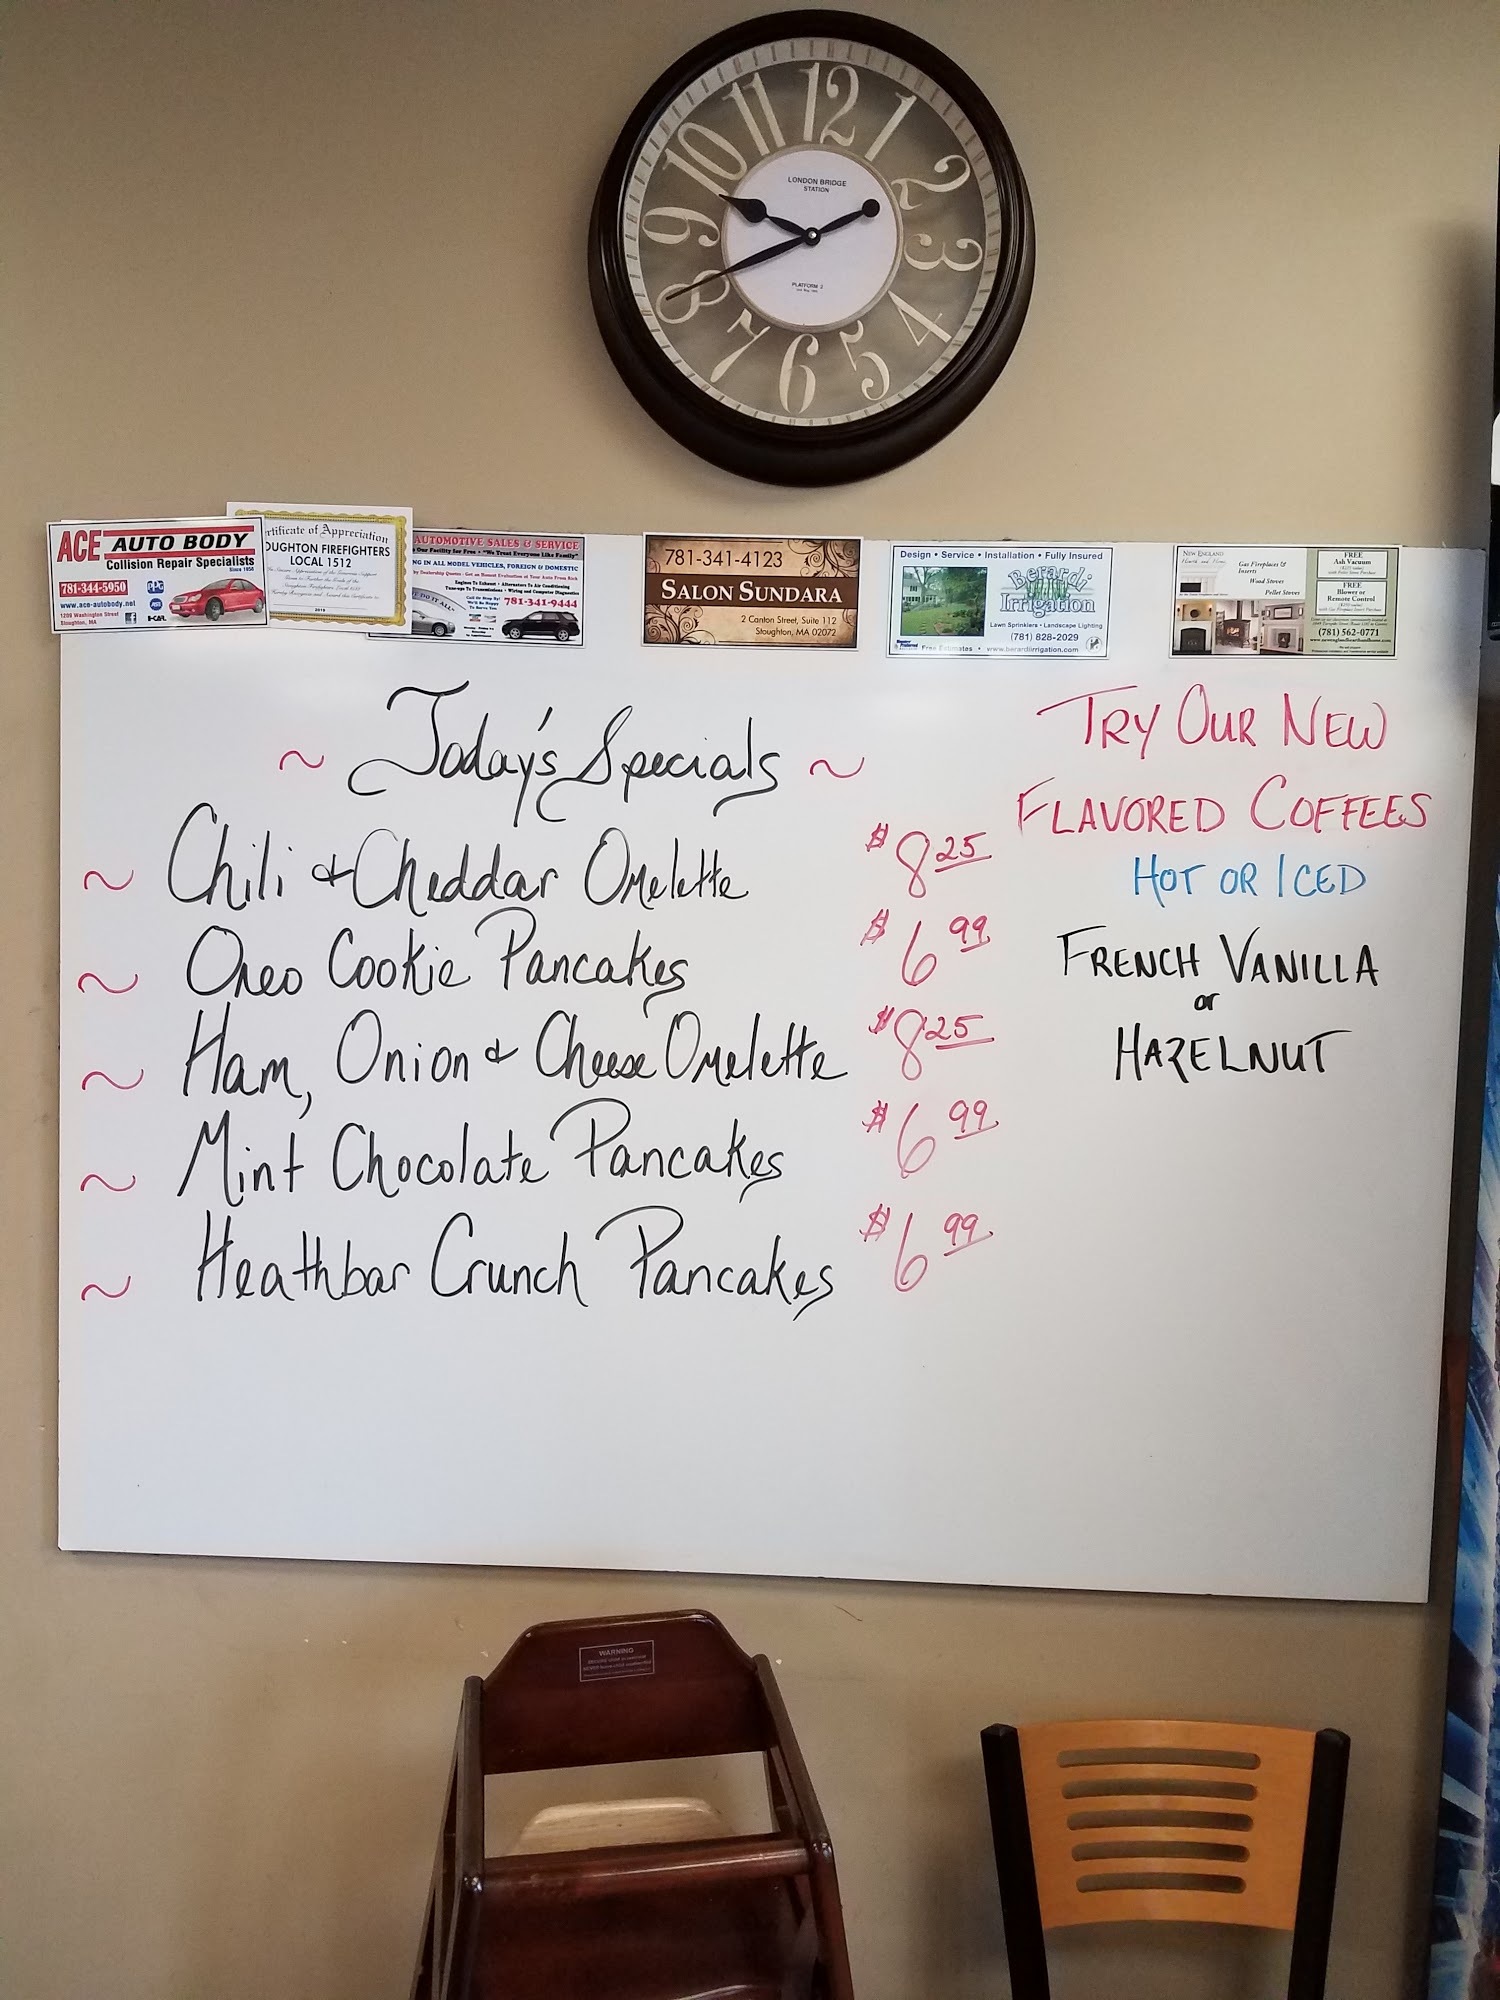 12
1
2
3
4
5
6
7
8
9
10
11
LONDON BRIDGE
STATION
PLATFORM 2
ACE AUTO BODY
Collision Repair Specialists
Since 1954
781-344-5950
www.ace-autobody.net
1209 Washington Street
Stoughton, MA
PPG
ASE
I-CAR
rtificate of Appreciation
OUGHTON FIREFIGHTERS
LOCAL 1512
2018
AUTOMOTIVE SALES & SERVICE
Our Facility for Free • "We Treat Everyone Like Family"
NG IN ALL MODEL VEHICLES, FOREIGN & DOMESTIC
Engines To Exhaust • Alternators To Air Conditioning
Tune-ups To Transmissions • Wiring and Computer Diagnostics
E DO IT ALL"
781-341-9444
781-341-4123
SALON SUNDARA
2 Canton Street, Suite 112
Stoughton, MA 02072
Design • Service • Installation • Fully Insured
Berardi
Irrigation
Lawn Sprinklers • Landscape Lighting
(781) 828-2029
Free Estimates • www.berardiirrigation.com
NEW ENGLAND
Hearth and Home
Gas Fireplaces &
Inserts
Wood Stoves
Pellet Stoves
FREE
Ash Vacuum
FREE
Blower or
Remote Control
(781) 562-0771
www.newenglandhearthandhome.com
~ Today's Specials ~
~ Chili & Cheddar Omelette $8 25
~ Oreo Cookie Pancakes $6 99
~ Ham, Onion & Cheese Omelette $8 25
~ Mint Chocolate Pancakes $6 99
~ Heathbar Crunch Pancakes $6 99
TRY OUR NEW
FLAVORED COFFEES
HOT OR ICED
FRENCH VANILLA
or
HAZELNUT
WARNING